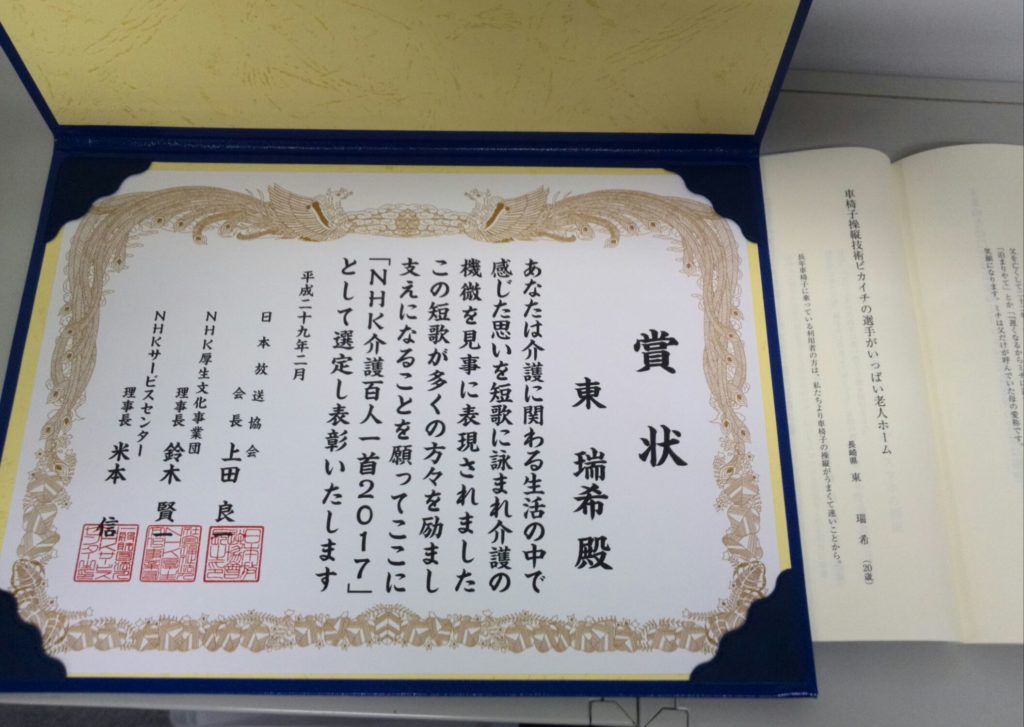 賞状
東 瑞希 殿
あなたは介護に関わる生活の中で
感じた思いを短歌に詠まれ介護の
機微を見事に表現されました
この短歌が多くの方々を励まし
支えになることを願ってここに
「NHK介護百人一首2017」
として選定し表彰いたします
平成二十九年二月
日本放送協会
会長 上田 良一
NHK厚生文化事業団
理事長 鈴木 賢一
NHKサービスセンター
理事長 米本 信
父を亡くして
「泊まりやて」とか「遅くなるから
笑顔になります。ミチは父だけが呼んでいた母の愛称です。
車椅子操縦技術ピカイチの選手がいっぱい老人ホーム
長崎県 東 瑞希 (20歳)
長年車椅子に乗っている利用者の方は、私たちより車椅子の操縦がうまくて速いことから。